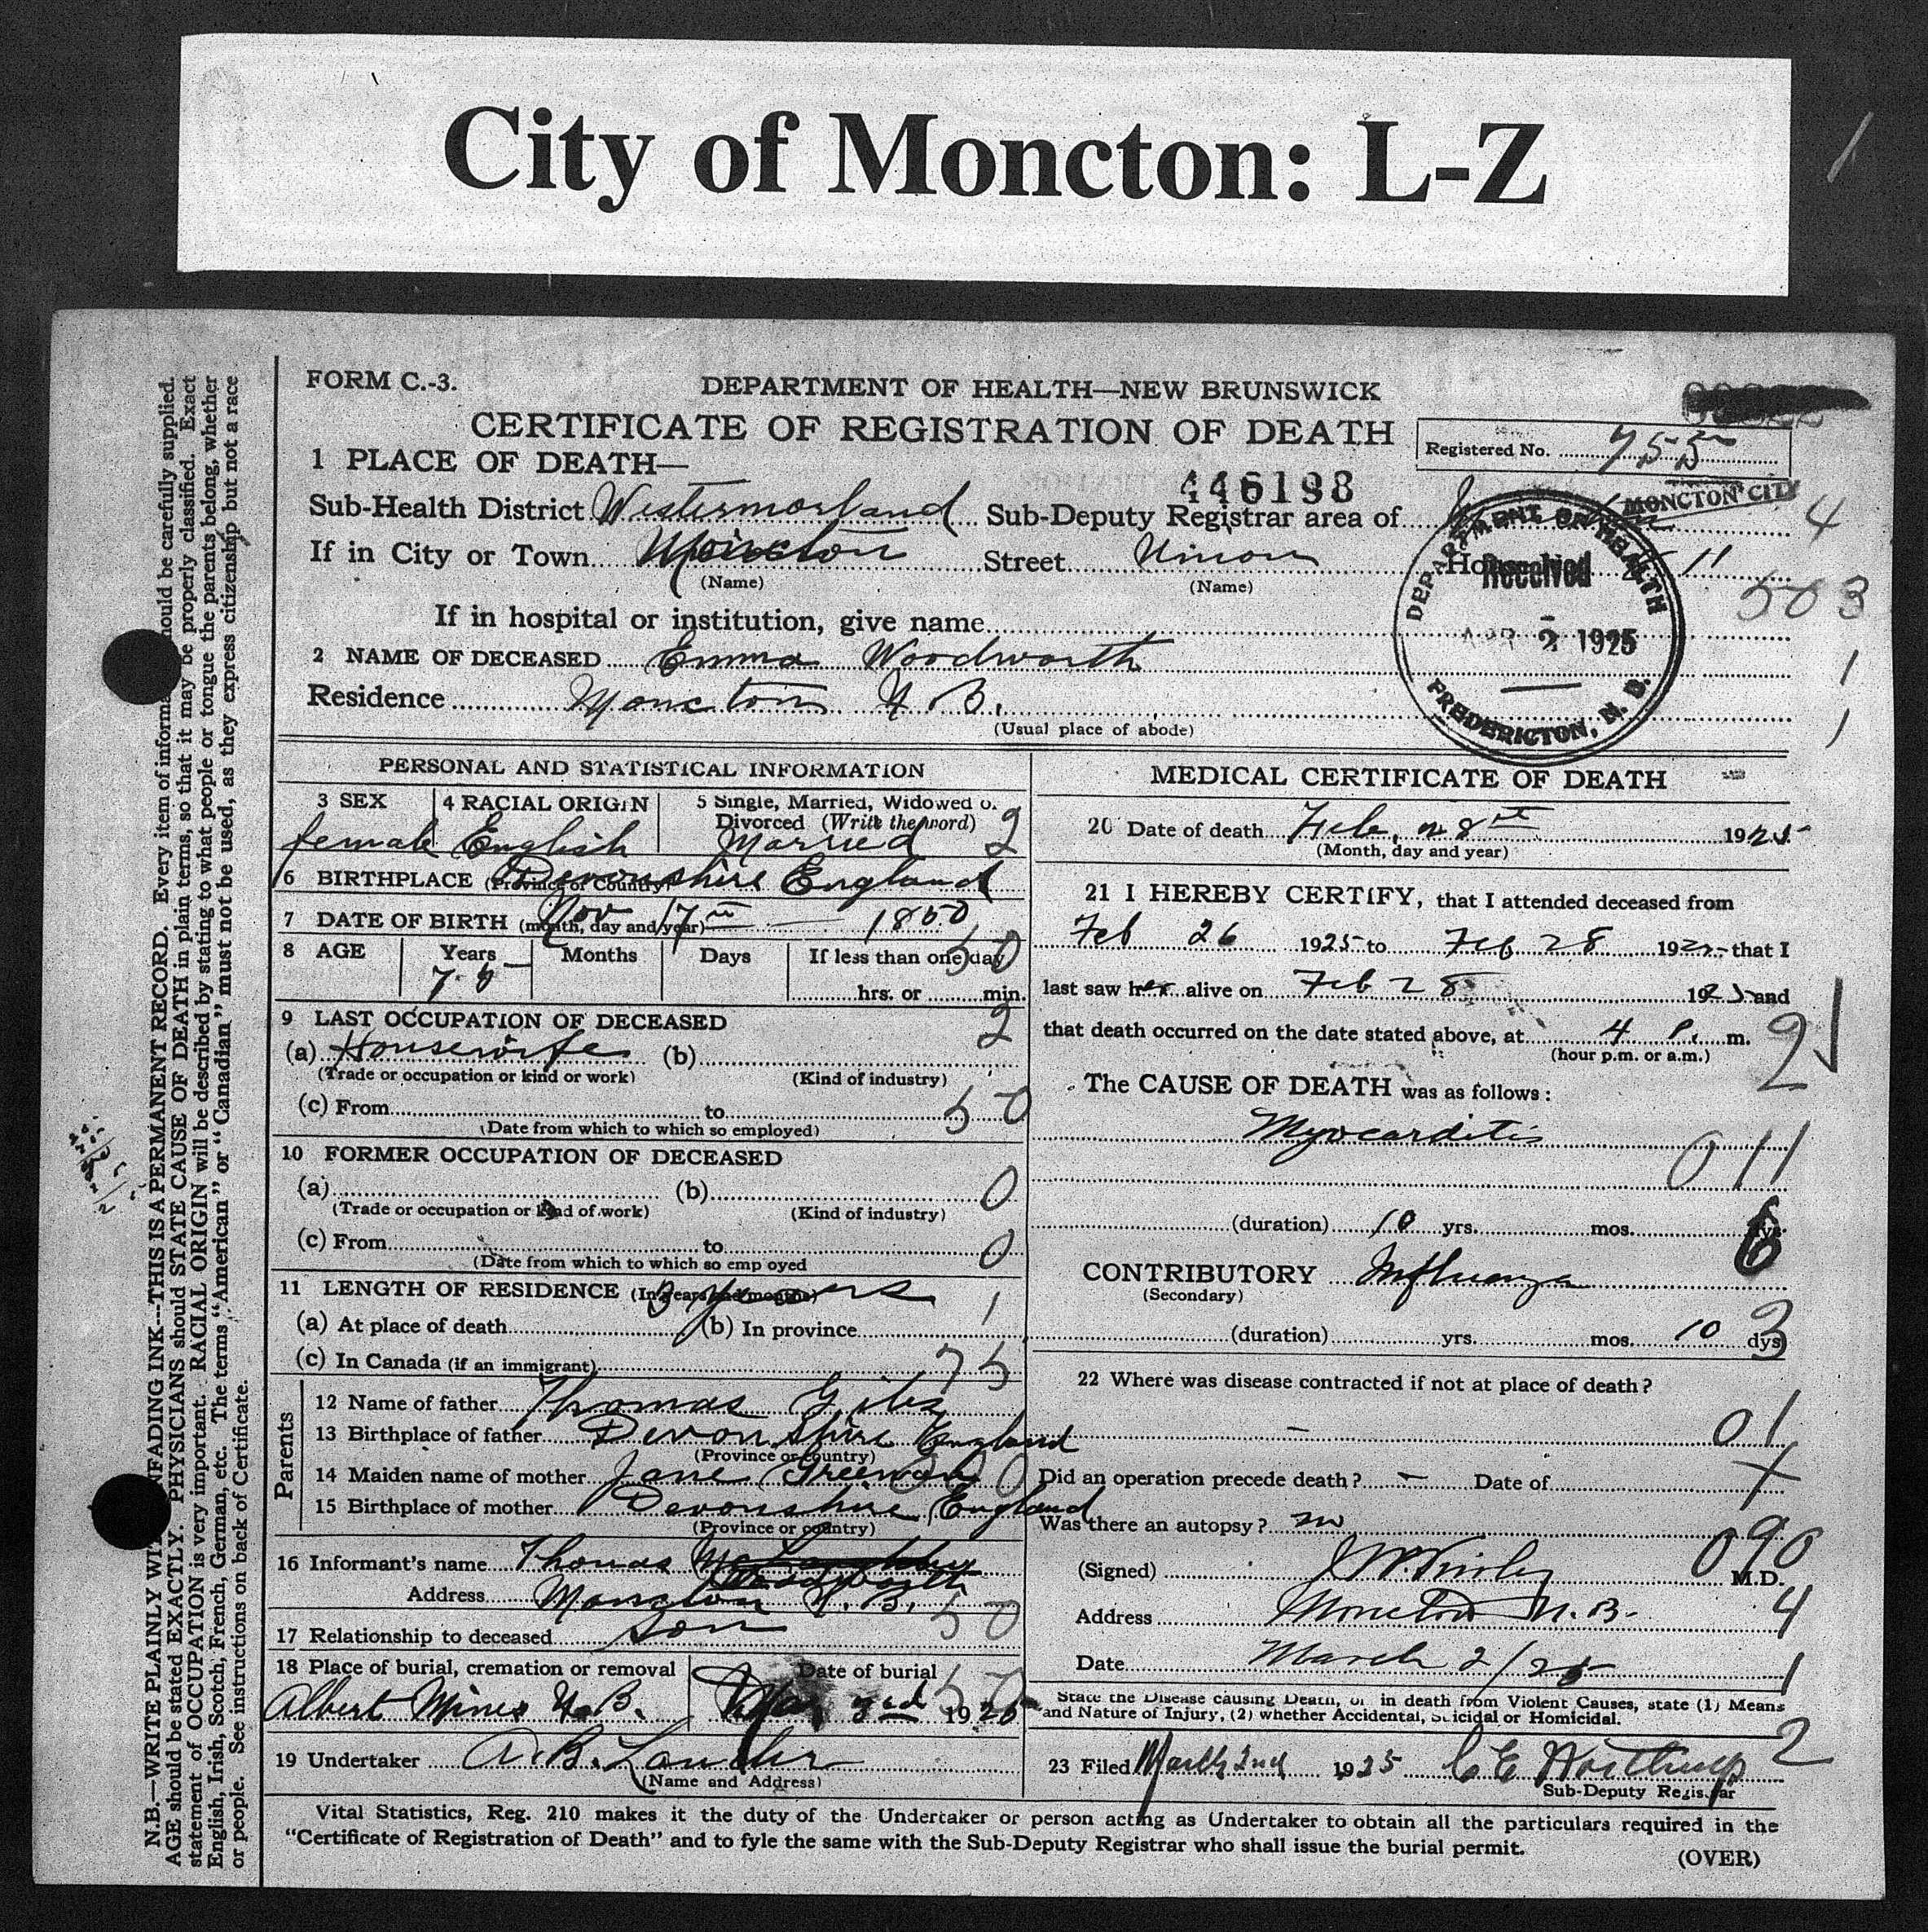 City of Moncton: L-Z
FORM C.-3.
DEPARTMENT OF HEALTH—NEW BRUNSWICK
CERTIFICATE OF REGISTRATION OF DEATH
Registered No. 755
1 PLACE OF DEATH—
446198
MONCTON CITY
Sub-Health District Westermorland Sub-Deputy Registrar area of 4
If in City or Town Moncton Street Union House 11
(Name) (Name)
503
If in hospital or institution, give name
DEPARTMENT OF HEALTH
Received
APR 2 1925
FREDERICTON, N. B.
2 NAME OF DECEASED Emma Woodworth 1
Residence Moncton N. B. 1
(Usual place of abode)
PERSONAL AND STATISTICAL INFORMATION
3 SEX 4 RACIAL ORIGIN 5 Single, Married, Widowed or
Divorced (Write the word)
female English Married 2
6 BIRTHPLACE (Province or Country) Devonshire England
7 DATE OF BIRTH (month, day and year) Nov 17th 1850
8 AGE Years Months Days If less than one day
50
75
hrs. or min.
9 LAST OCCUPATION OF DECEASED 2
(a) Housewife (b)
(Trade or occupation or kind or work) (Kind of industry)
(c) From to 50
(Date from which to which so employed)
10 FORMER OCCUPATION OF DECEASED
(a) (b) 0
(Trade or occupation or kind of work) (Kind of industry)
(c) From to 0
(Date from which to which so emp oyed
11 LENGTH OF RESIDENCE (In years and months) 3 years 1
(a) At place of death (b) In province
(c) In Canada (if an immigrant) 75
Parents
12 Name of father Thomas Giles
13 Birthplace of father Devonshire England
(Province or country)
14 Maiden name of mother Jane 000
15 Birthplace of mother Devonshire England
(Province or country)
16 Informant's name Thomas
Woodworth
Address Moncton N. B.
50
17 Relationship to deceased son
18 Place of burial, cremation or removal Date of burial
50
Albert Mines N.B. Mar 3rd 1925
19 Undertaker A. B. Lander
(Name and Address)
MEDICAL CERTIFICATE OF DEATH
20 Date of death Feb, 28th 1925
(Month, day and year)
21 I HEREBY CERTIFY, that I attended deceased from
Feb 26 1925 to Feb 28 1925 that I
last saw her alive on Feb 28 1925 and
that death occurred on the date stated above, at 4 P. m.
(hour p.m. or a.m.)
21
The CAUSE OF DEATH was as follows:
Myocarditis
011
(duration) 10 yrs. mos. dys.
6
CONTRIBUTORY Influenza
(Secondary)
(duration) yrs. mos. 10 dys
3
22 Where was disease contracted if not at place of death?
— 01
Did an operation precede death? — Date of
Was there an autopsy? no
090
(Signed) M.D.
Address Moncton N. B. 4
Date March 2/25 1
State the Disease causing Death, or in death from Violent Causes, state (1) Means
and Nature of Injury, (2) whether Accidental, Suicidal or Homicidal.
2
23 Filed March 2nd 1925 C E Northrup
Sub-Deputy Registrar
Vital Statistics, Reg. 210 makes it the duty of the Undertaker or person acting as Undertaker to obtain all the particulars required in the
"Certificate of Registration of Death" and to fyle the same with the Sub-Deputy Registrar who shall issue the burial permit.
(OVER)
N.B.—WRITE PLAINLY WITH UNFADING INK---THIS IS A PERMANENT RECORD. Every item of information should be carefully supplied.
AGE should be stated EXACTLY. PHYSICIANS should STATE CAUSE OF DEATH in plain terms, so that it may be properly classified. Exact
statement of OCCUPATION is very important. RACIAL ORIGIN will be described by stating to what people or tongue the parents belong, whether
English, Irish, Scotch, French, German, etc. The terms "American" or "Canadian" must not be used, as they express citizenship but not a race
or people. See instructions on back of Certificate.